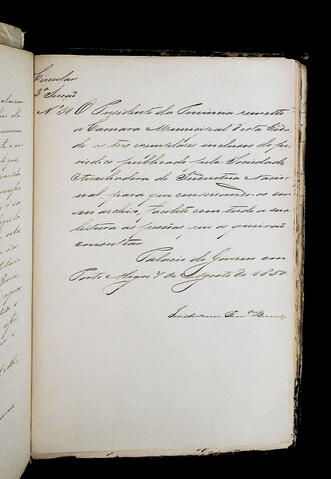 Circular
2ª Secção
Nº 31 O Presidente da Provincia remette
a Camara Municipal desta Cida-
de os tres exemplares inclusos do pe-
riodico publicado pela Sociedade
da Industria Nacio-
nal para que conservando-os em
seu archivo, facilite com toda a
leitura as pessoas em a queirão
consultar.
Palacio do Governo em
Porto Alegre 7 de Agosto de